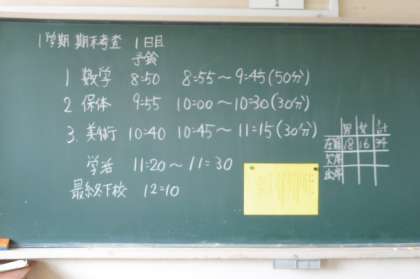 1学期 期末考査 1日目
予鈴
1 数学 8:50 8:55〜9:45(50分)
2 保体 9:55 10:00〜10:30(30分)
3. 美術 10:40 10:45〜11:15(30分)
学活 11:20〜11:30
最終下校 12:10
男 女 計
在籍 18 16 34
欠席
出席